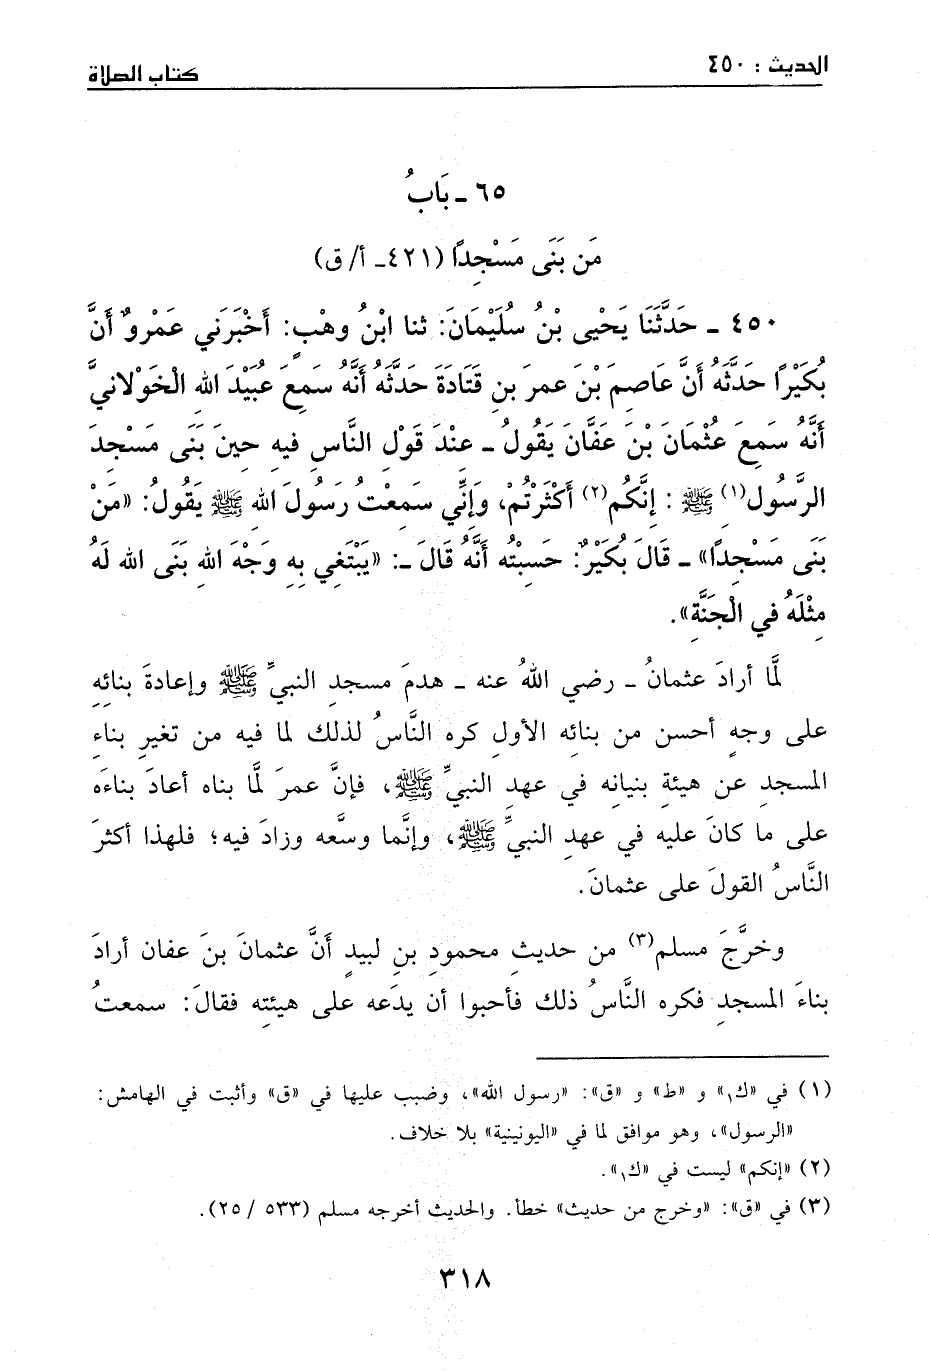 الحديث : ٤٥٠
كتاب الصلاة
٦٥ ـ بَابُ
مَن بَنَى مَسْجِدًا (٤٢١ ـ أ/ ق)
٤٥٠ ـ حَدَّثَنَا يَحْيى بْنُ سُلَيْمَانَ: ثنا ابْنُ وهْبٍ: أَخْبَرَني عَمْروٌ أَنَّ
بُكَيْرًا حَدَّثَهُ أَنَّ عَاصِمَ بْنَ عمرَ بنِ قَتَادَةَ حَدَّثَهُ أَنَّهُ سَمِعَ عُبَيْدَ الله الْخَوْلانيَّ
أَنَّهُ سَمِعَ عُثْمَانَ بْنَ عَفَّانَ يَقُولُ ـ عنْدَ قَوْلِ النَّاسِ فيهِ حينَ بَنَى مَسْجِدَ
الرَّسُولِ(١) ﷺ : إِنَّكُم(٢) أَكْثَرْتُمْ، وَإِنِّي سَمعْتُ رَسُولَ الله ﷺ يَقُولُ: «مَنْ
بَنَى مَسْجِدًا» ـ قَالَ بُكَيْرٌ: حَسبْتُه أَنَّهُ قَالَ ـ: «يَبْتَغي بِهِ وَجْهَ اللهِ بَنَى الله لَهُ
مِثْلَهُ في الْجَنَّةِ».
لمَّا أرادَ عثمانُ ـ رضي اللهُ عنه ـ هدمَ مسجدِ النبيِّ ﷺ وإعادةَ بنائِهِ
على وجهٍ أحسن من بنائه الأولِ كره النَّاسُ لذلك لما فيه من تغيرِ بناءِ
المسجدِ عن هيئةِ بنيانِه في عهدِ النبيِّ ﷺ، فإنَّ عمرَ لمَّا بناه أعادَ بناءَه
على ما كانَ عليه في عهدِ النبيِّ ﷺ، وإنَّما وسعَّه وزادَ فيه؛ فلهذا أكثرَ
النَّاسُ القولَ على عثمانَ.
وخرَّجَ مسلم(٣) من حديثِ محمودِ بنِ لبيدٍ أَنَّ عثمانَ بنَ عفان أرادَ
بناءَ المسجدِ فكره النَّاسُ ذلك فأحبوا أن يدَعه على هيئتِه فقالَ: سمعتُ
(١) في «ك١» و «ط» و «ق»: «رسول الله»، وضبب عليها في «ق» وأثبت في الهامش:
«الرسول»، وهو موافق لما في «اليونينية» بلا خلاف.
(٢) «إنكم» ليست في «ك١».
(٣) في «ق»: «وخرج من حديث» خطأ. والحديث أخرجه مسلم (٥٣٣ / ٢٥).
٣١٨